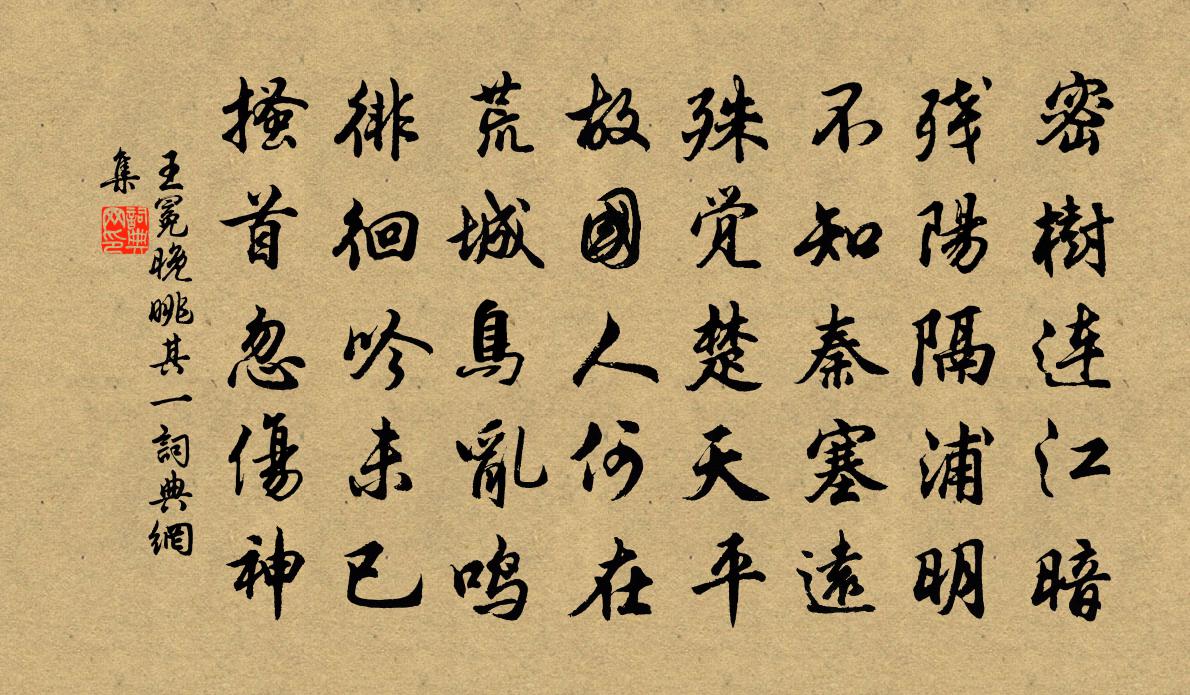 密樹連江暗
残陽隔浦明
不知秦塞遠
殊覺楚天平
故國人何在
荒城鳥亂鳴
徘徊吟未已
搔首忽傷神
王冕晚眺其一詞典網
集
詞典
网印